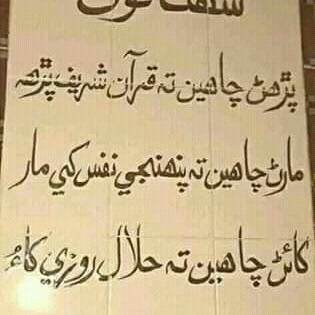 پڙهڻ چاهين ته قرآن شريف پڙهه
مارڻ چاهين ته پنهنجي نفس کي مار
کائڻ چاهين ته حلال روزي کاءُ